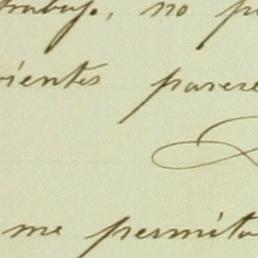 trabajo, no p
vientes parece
me permita